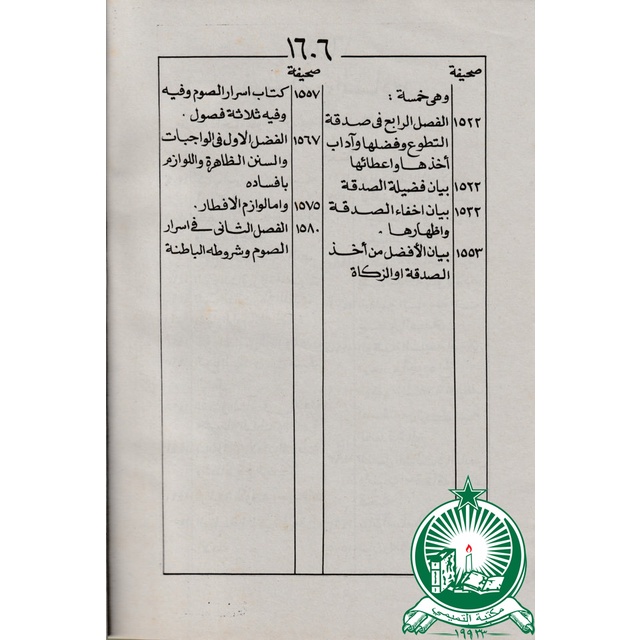 ١٦٠٦
صحيفة
وهى خمسة :
١٥٢٢ الفصل الرابع فى صدقة
التطوع وفضلها وآداب
أخذها واعطائها
١٥٢٢ بيان فضيلة الصدقة
١٥٣٢ بيان اخفاء الصدقة
واظهارها .
١٥٥٣ بيان الأفضل من أخذ
الصدقة او الزكاة
صحيفة
١٥٥٧ كتاب اسرار الصوم وفيه
وفيه ثلاثة فصول .
١٥٦٧ الفضل الاول فى الواجبات
والسنن الظاهرة واللوازم
بافساده
١٥٧٥ واما لوازم الافطار .
١٥٨٠ الفصل الثانى فى اسرار
الصوم وشروطه الباطنة
مكتبة التميمي